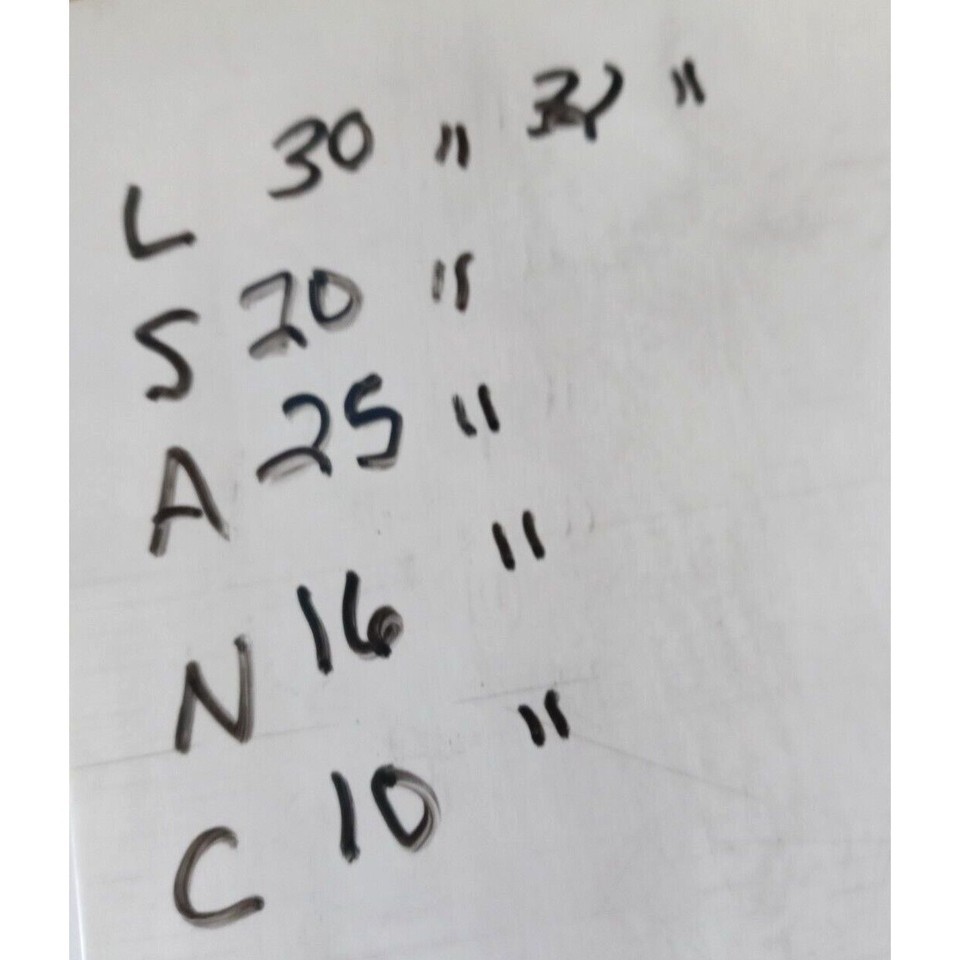 L 30 " "
S 20 "
A 25 "
N 16 "
C 10 "